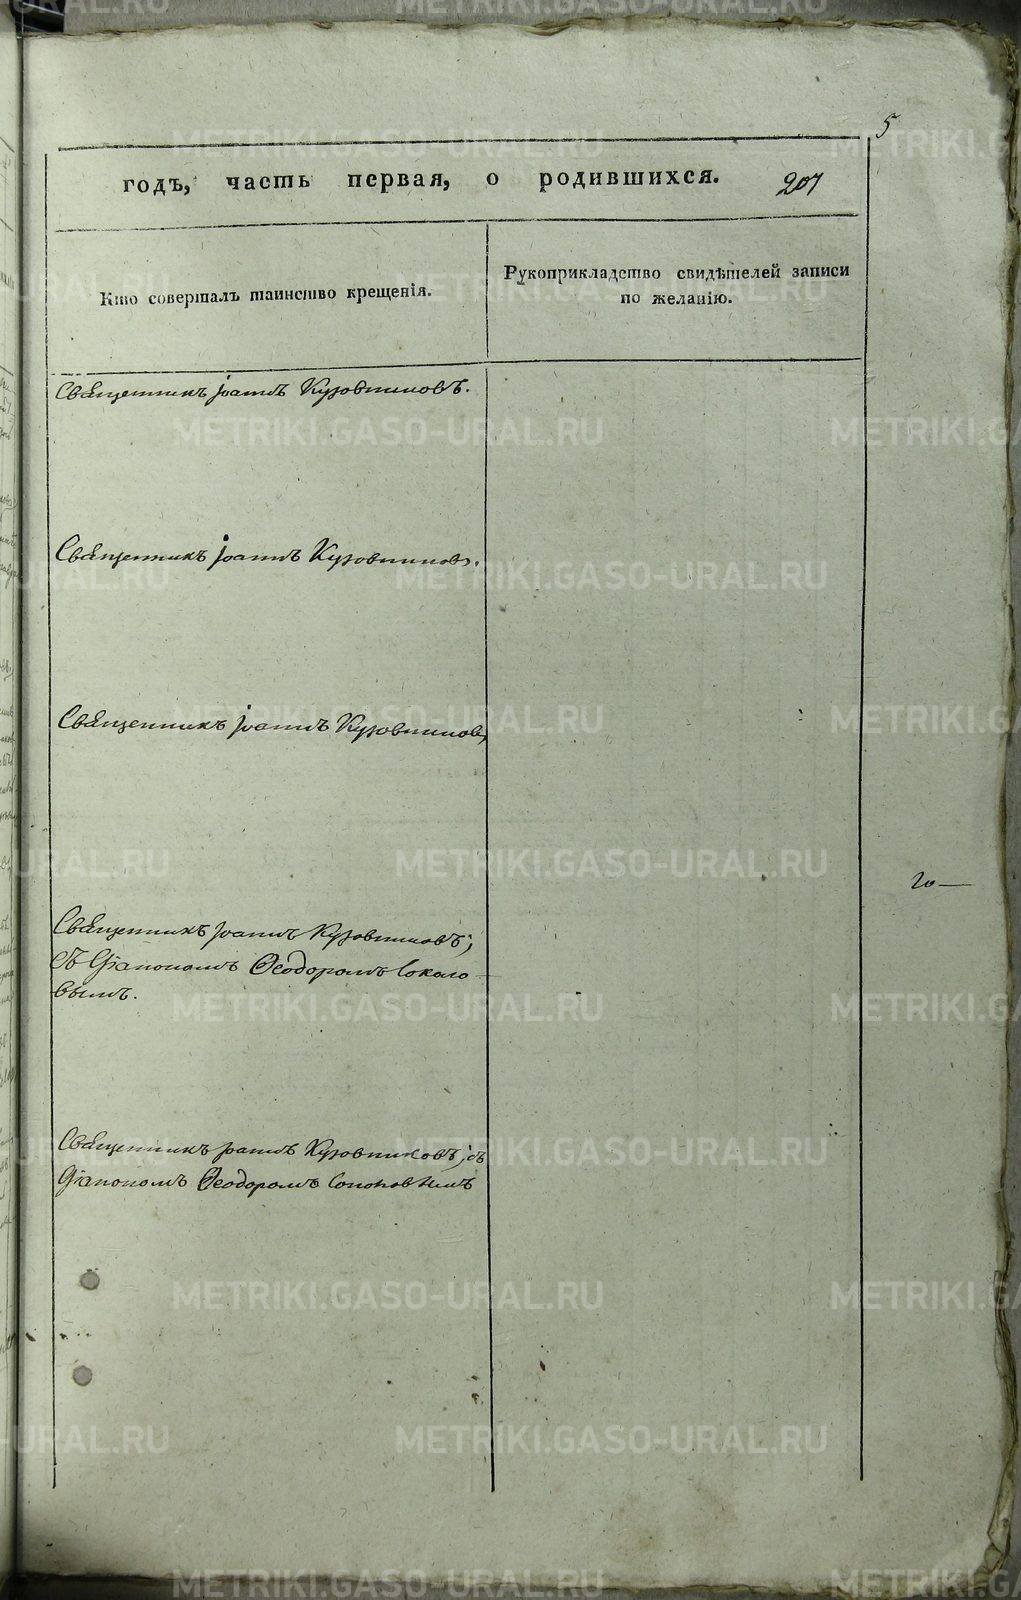 5
годъ, часть первая, о родившихся. 207
Кто совершалъ таинство крещенія.
Рукоприкладство свидѣтелей записи
по желанію.
Священникъ Іоаннъ Кузовниковъ.
Священникъ Іоаннъ Кузовниковъ.
Священникъ Іоаннъ Кузовниковъ,
20—
Священникъ Іоаннъ Кузовниковъ;
съ Діакономъ Ѳеодоромъ Соколо
вымъ.
Священникъ Іоаннъ Кузовниковъ; съ
Діакономъ Ѳеодоромъ Соколовымъ
METRIKI.GASO-URAL.RU